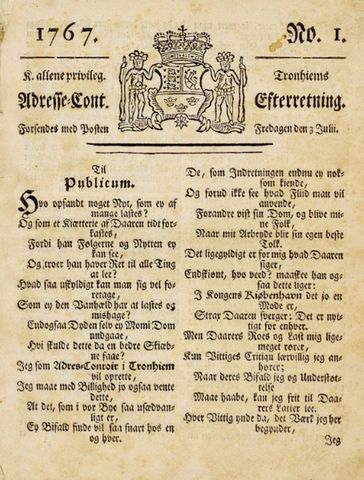 1767.
No. 1.
K. allene privileg.
Tronhiems
Adresse-Cont.
Efterretning.
Forsendes med Posten
Fredagen den 3 Julii.
Til
Publicum.
Hvo opfandt noget Nyt, som ey af
mange lastes?
Og som et Kiætterie af Daaren tidt for-
kastes,
Fordi han Følgerne og Nytten ey
kan see,
Og troer han haver Ret til alle Ting
at lee!
Hvad saa uskyldigt kan man sig vel fo-
retage,
Som ey den Vanhæld har at lastes og
mishage?
Endogsaa Dyden selv ey Momi Dom
undgaae,
Hvi skulde dette da en bedre Skiæb-
ne faae?
Jeg som Adres-Contoir i Tronhiem
vil oprette,
Jeg maae med Billighed jo ogsaa vente
dette,
At det, som i vor Bye saa usædvan-
ligt er,
Ey Bifald finde vil snart hos en
og hver.
De, som Indretningen endnu ey nok-
som kiende,
Og forud ikke see hvad Fliid man vil
anvende,
Forandre vist sin Dom, og blive mi-
ne Folk,
Naar mit Arbeyde blir sin egen beste
Tolk.
Det ligegyldigt er for mig hvad Daaren
siger,
Endskiønt, hvo veed? maaskee han og-
saa dette liger;
I Kongens Kiøbenhavn det jo en
Mode er,
Straf Daaren sverger: Det er nyt-
tigt for enhver.
Men Daarers Roes og Last mig lige-
meget rører,
Kun Vittiges Critiqu lærvillig jeg an-
hører;
Naar deres Bifald jeg og Understøt-
telse
Maae haabe, kan jeg frit til Daa-
rers Latter lee.
Hver Vittig ynde da, det Værk jeg her
begynder,
Jeg